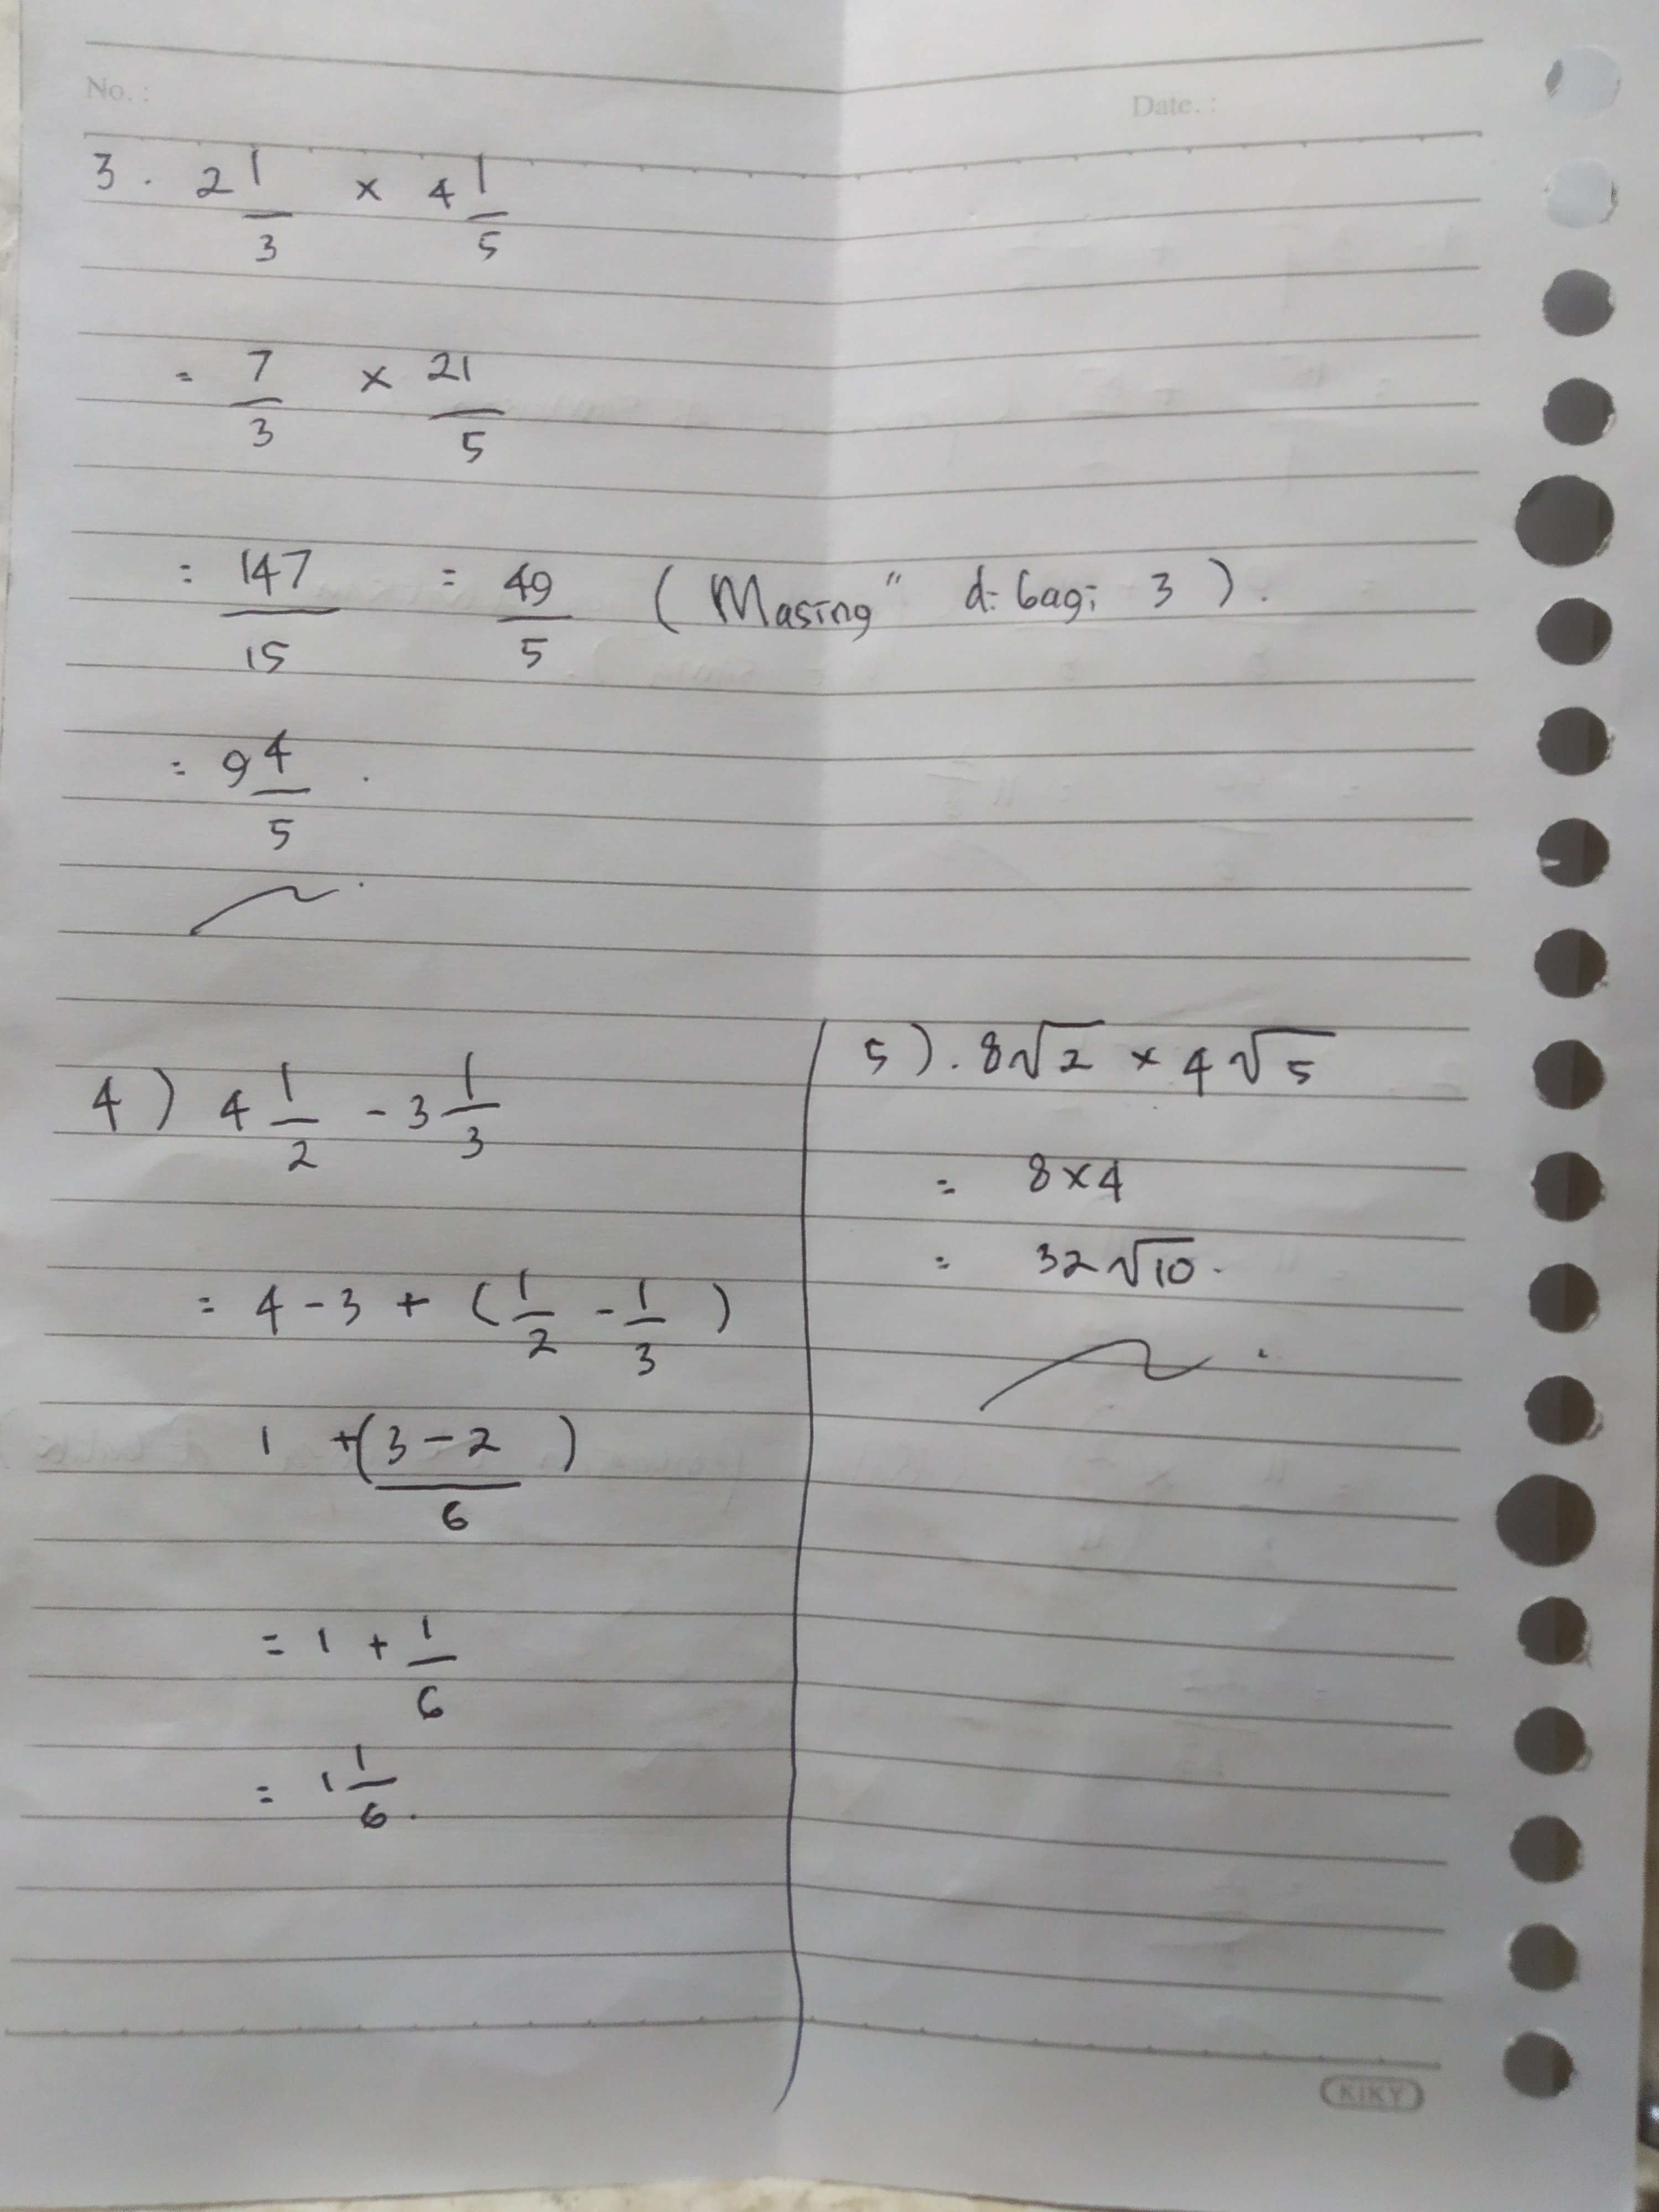 No. :
Date. :
3. 2 1/3 × 4 1/5
= 7/3 × 21/5
= 147/15 = 49/5 (Masing" di bagi 3).
= 9 4/5.
4) 4 1/2 - 3 1/3
= 4 - 3 + (1/2 - 1/3)
1 + (3 - 2/6)
= 1 + 1/6
= 1 1/6.
5). 8√2 × 4√5
= 8 × 4
= 32√10.
KIKY